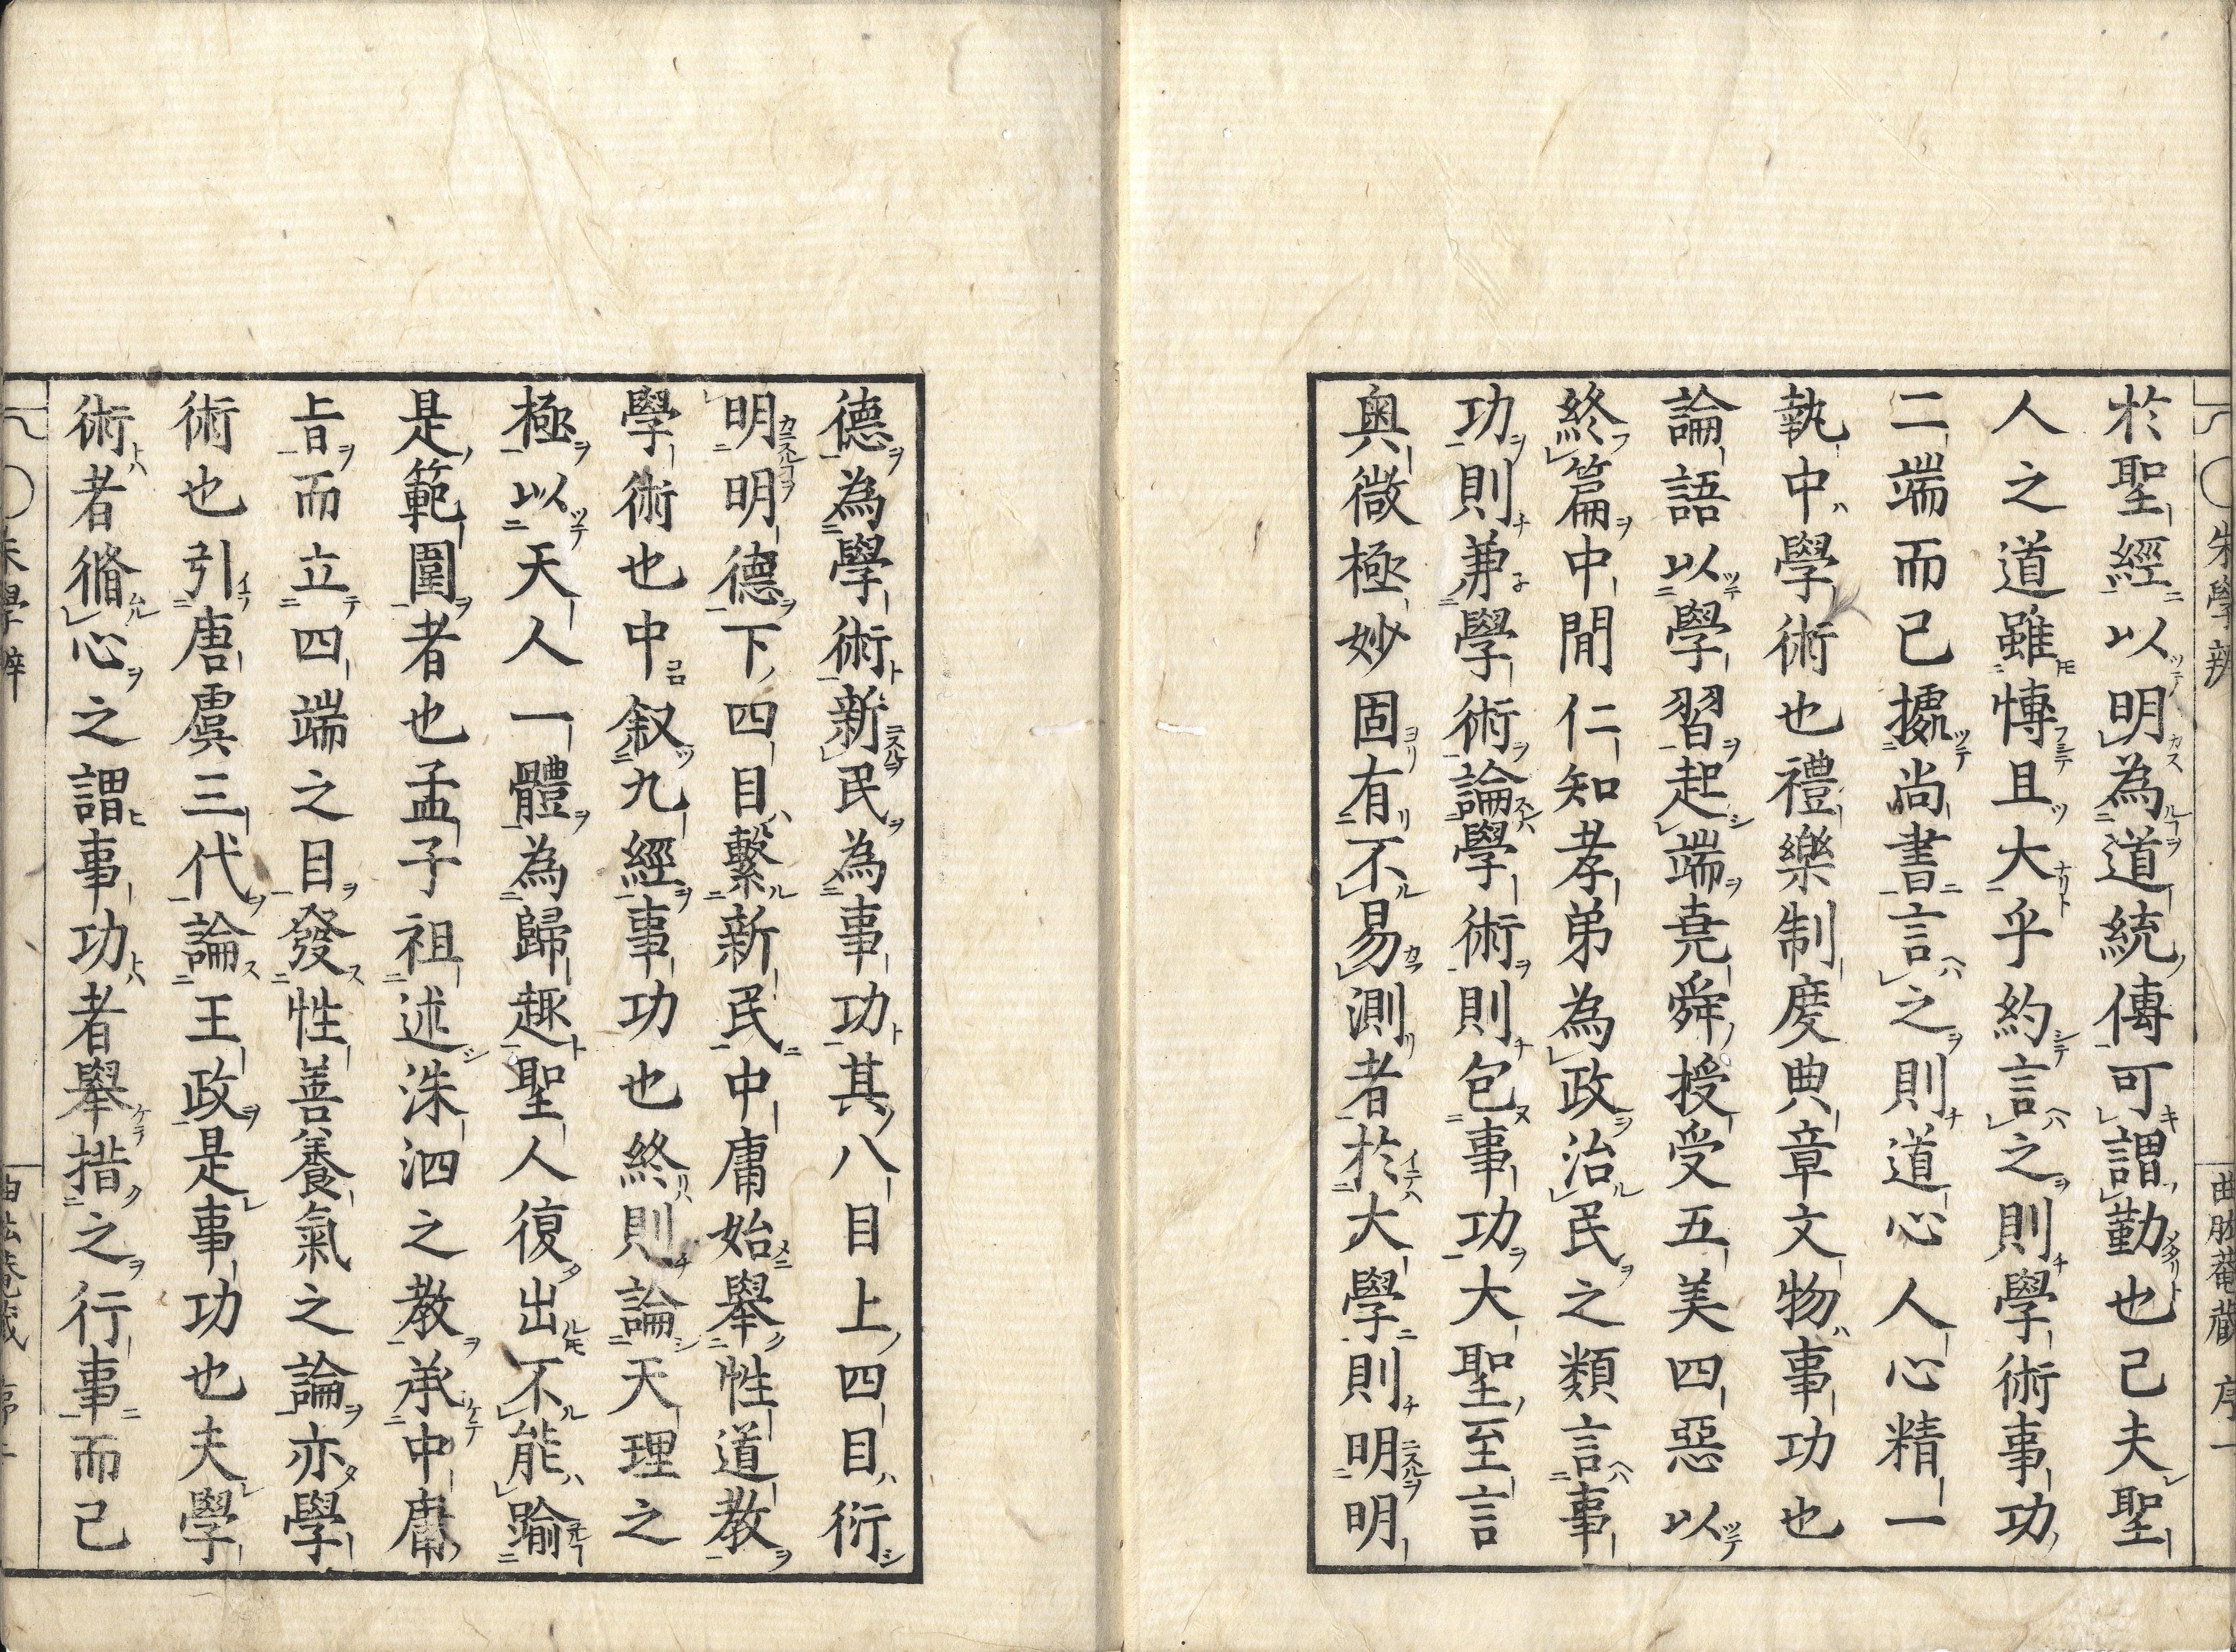 朱學辨 曲肱菴藏 序一
於聖經以明為道統傳可謂勤也已夫聖
人之道雖博且大乎約言之則學術事功
二端而已據尚書言之則道心人心精一
執中學術也禮樂制度典章文物事功也
論語以學習起端堯舜授受五美四惡以
終篇中間仁知孝弟為政治民之類言事
功則兼學術論學術則包事功大聖至言
奧微極妙固有不易測者於大學則明明
德為學術新民為事功其八目上四目衍
明明德下四目繫新民中庸始舉性道教
學術也中叙九經事功也終則論天理之
極以天人一體為歸趣聖人復出不能踰
是範圍者也孟子祖述洙泗之教承中庸
旨而立四端之目發性善養氣之論亦學
術也引唐虞三代論王政是事功也夫學
術者脩心之謂事功者舉措之行事而已